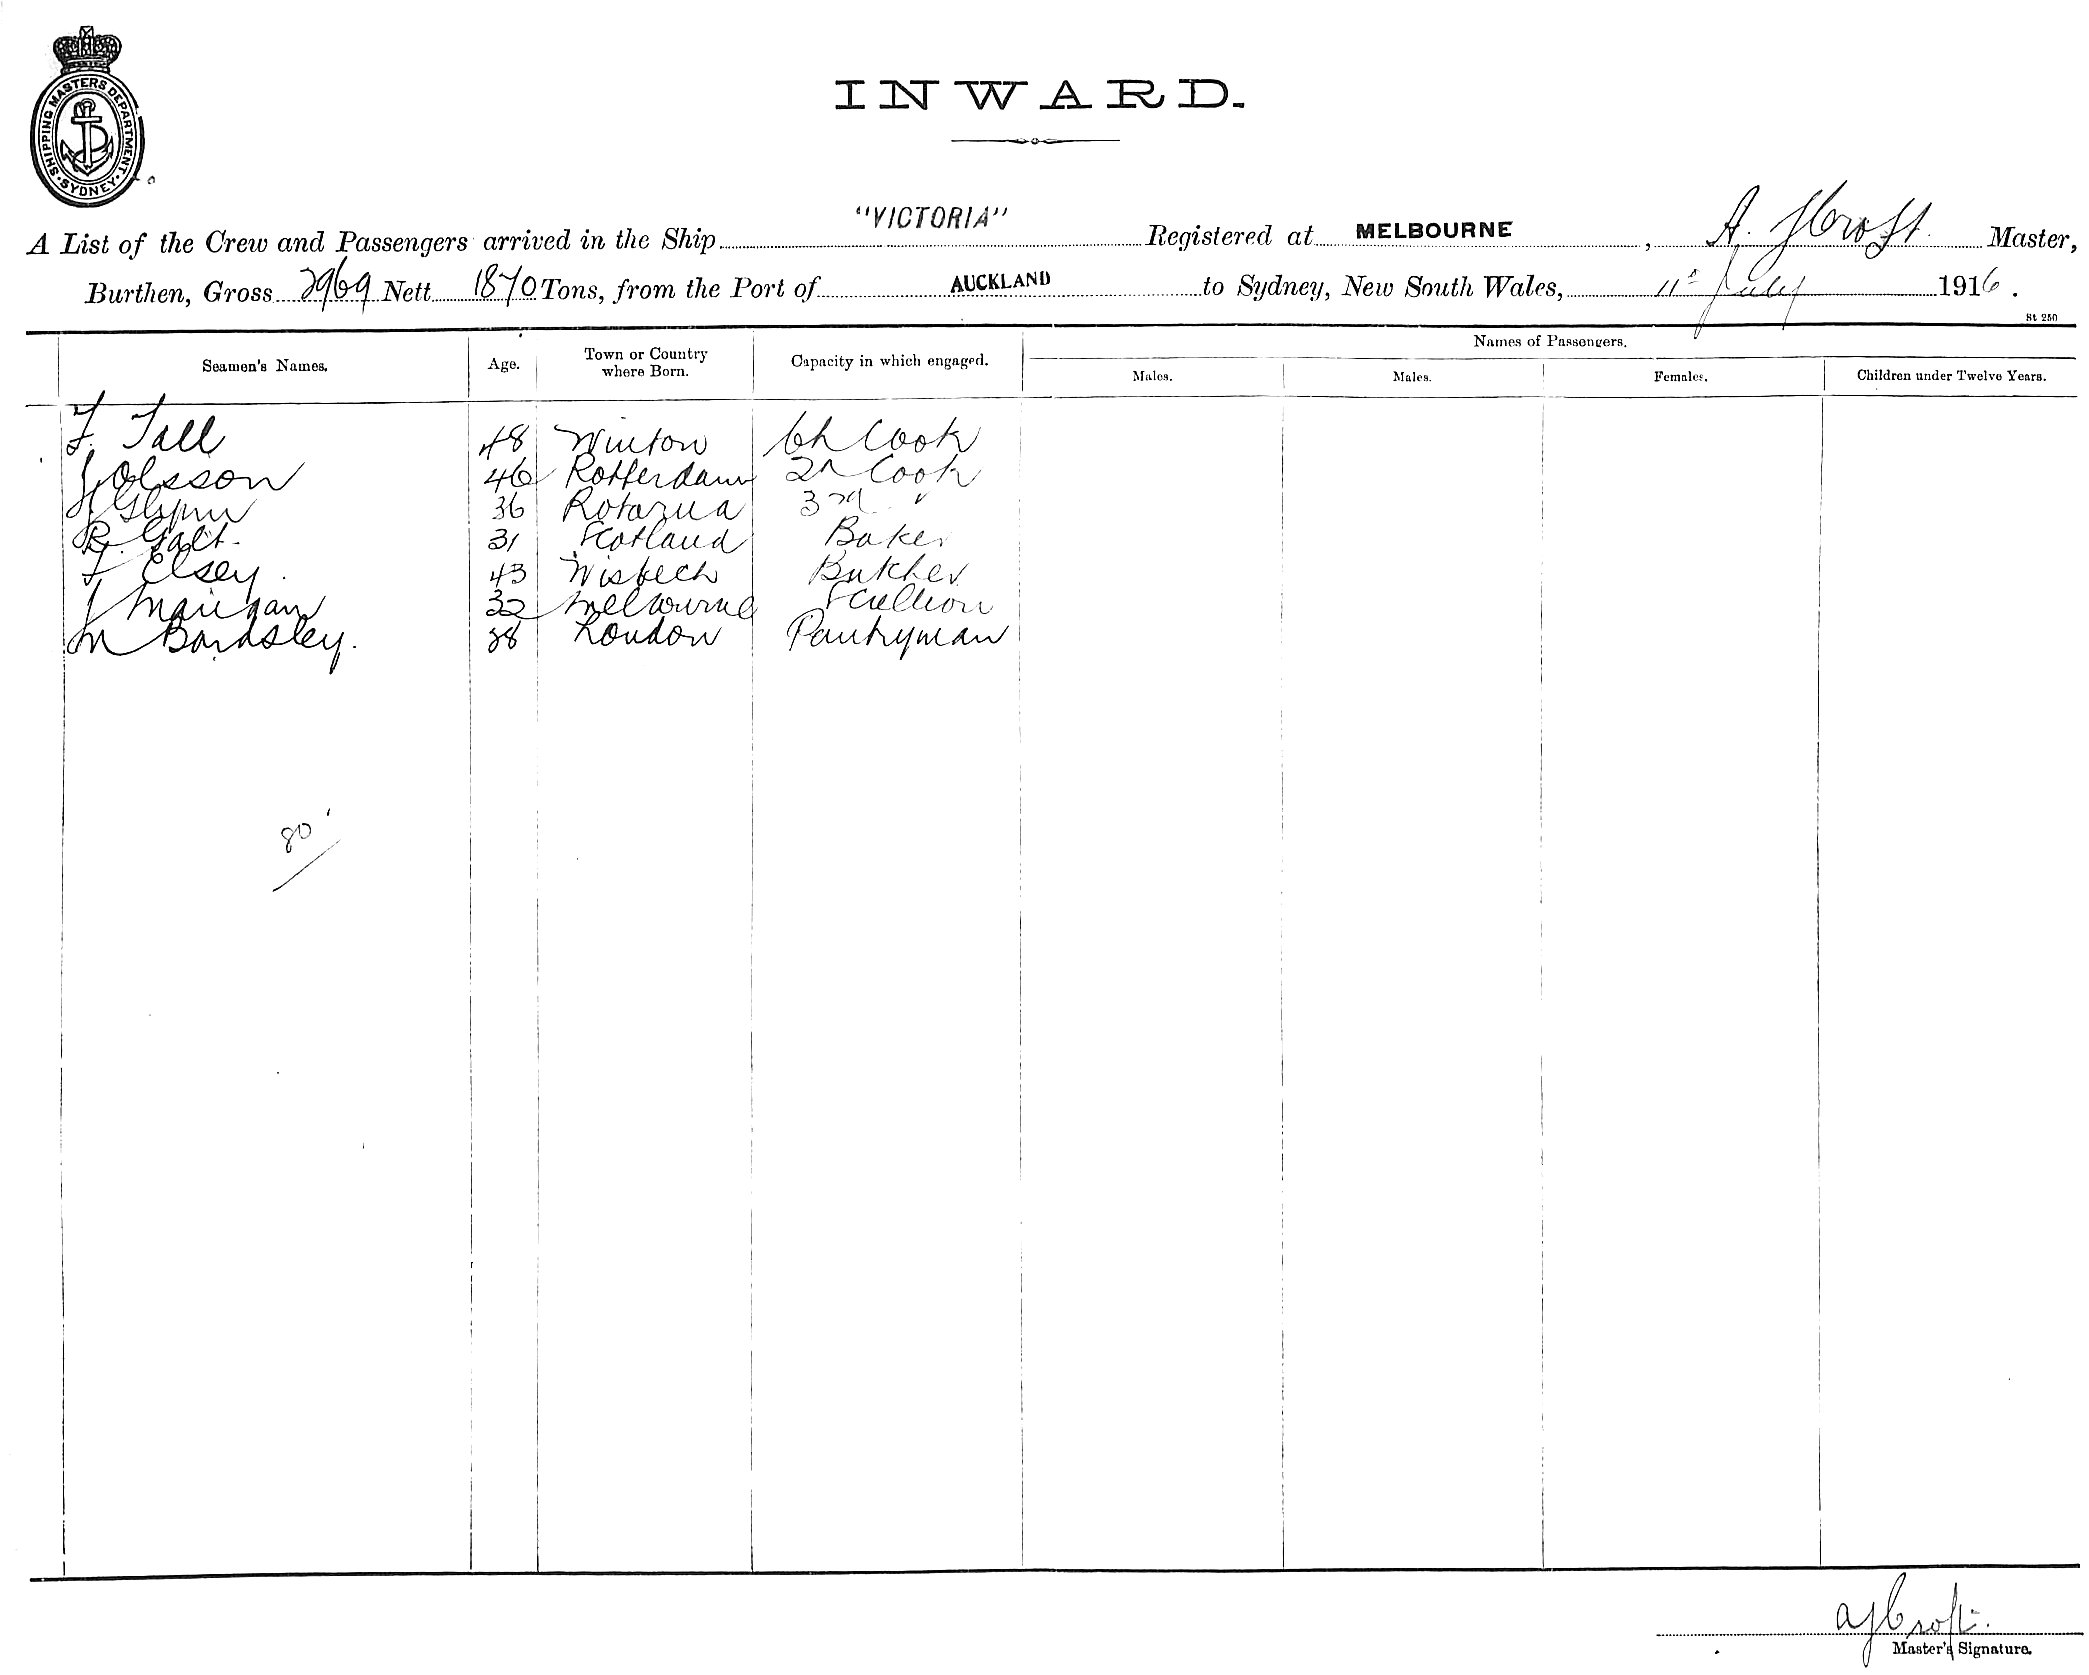 SHIPPING MASTERS DEPARTMENT · SYDNEY ·
INWARD.
A List of the Crew and Passengers arrived in the Ship "VICTORIA" Registered at MELBOURNE, A. J Croft. Master,
Burthen, Gross 2969 Nett 1870 Tons, from the Port of AUCKLAND to Sydney, New South Wales, 11th July 1916.
St 250
Seamen's Names. Age. Town or Country where Born. Capacity in which engaged. Names of Passengers.
Males. Males. Females. Children under Twelve Years.
F. Tall 48 Winton Ch Cook
J Olsson 46 Rotterdam 2n Cook
J Glynn 36 Rotarua 3rd "
R. Galt. 31 Scotland Baker
F Elsey. 43 Wisbech Butcher
J 32 Melbourne Scullion
M Bardsley. 28 London Pantryman
80
AJCroft.
Master's Signature.